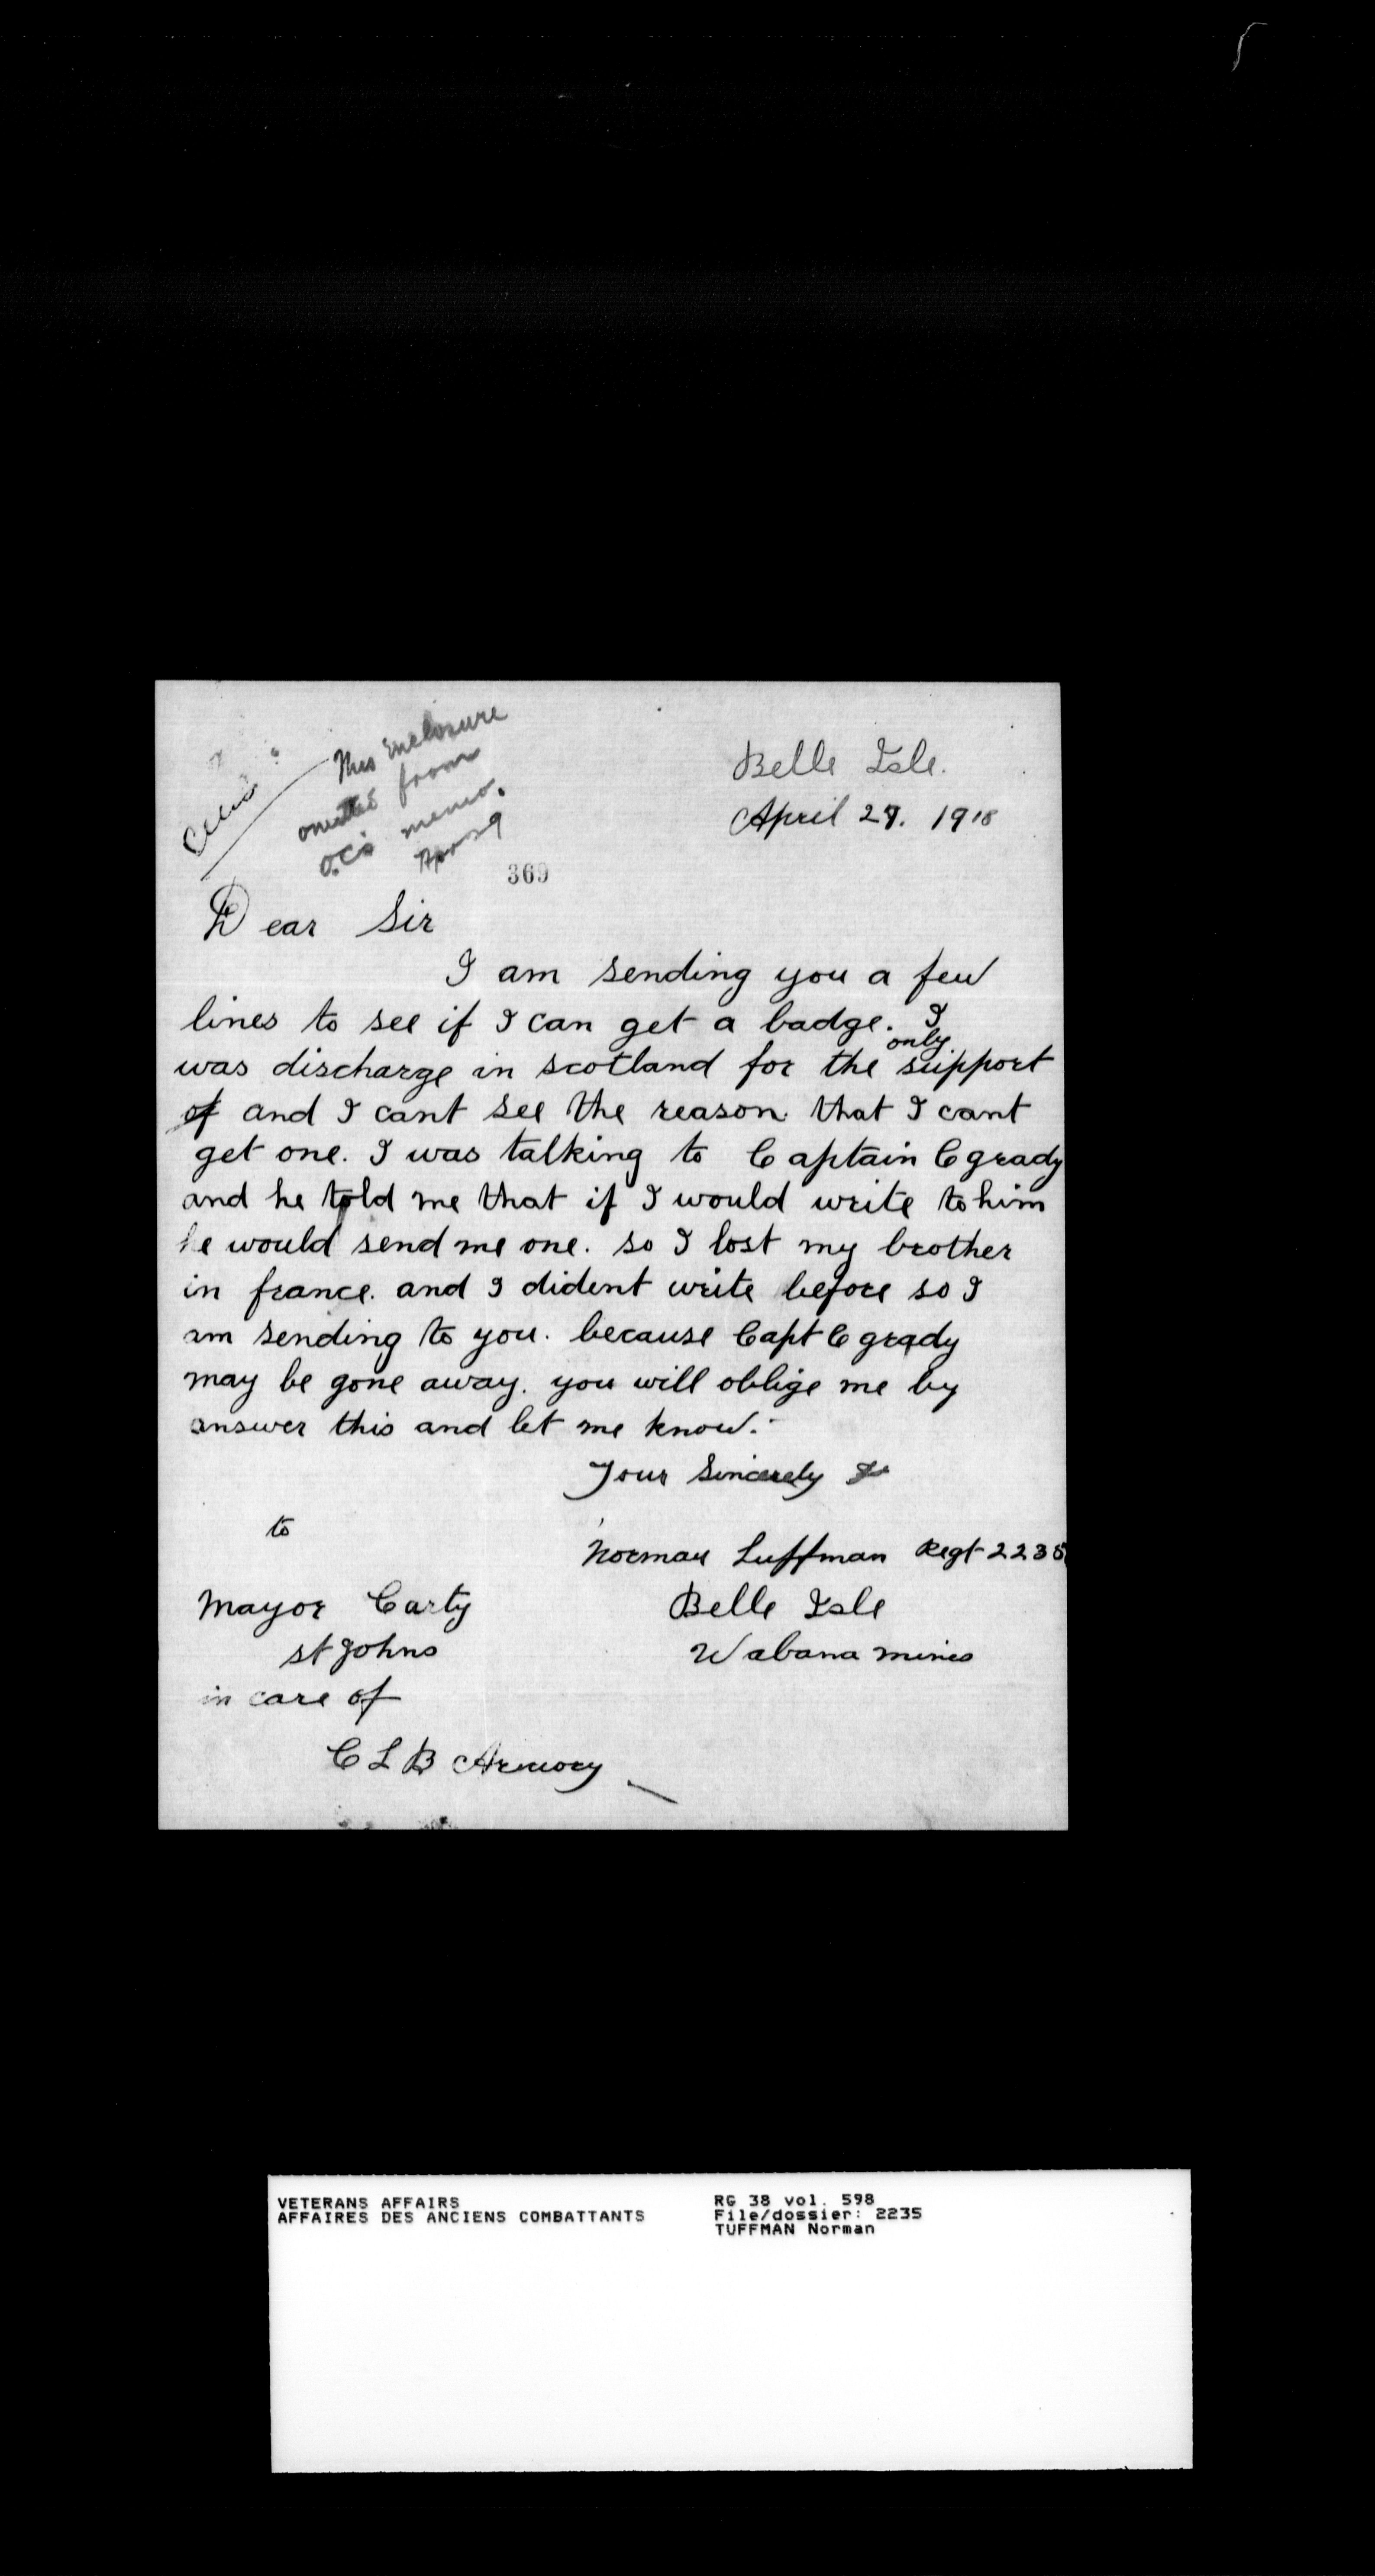 This enclosure
omitted from
O.C's memo.
Apr 29
Belle Isle.
April 27. 1918
369
Dear Sir
I am sending you a few
lines to see if I can get a badge. I
was discharge in scotland for the only support
of and I cant see the reason that I cant
get one. I was talking to Captain Cgrady
and he told me that if I would write to him
he would send me one. so I lost my brother
in france. and I dident write before so I
am sending to you. because Capt C grady
may be gone away. you will oblige me by
answer this and let me know.
Your Sincerely
to
Norman Luffman Regt 2235
Mayor Carty
Belle Isle
st Johns
Wabana mines
in care of
C L B Armory
VETERANS AFFAIRS
AFFAIRES DES ANCIENS COMBATTANTS
RG 38 vol. 598
File/dossier: 2235
TUFFMAN Norman